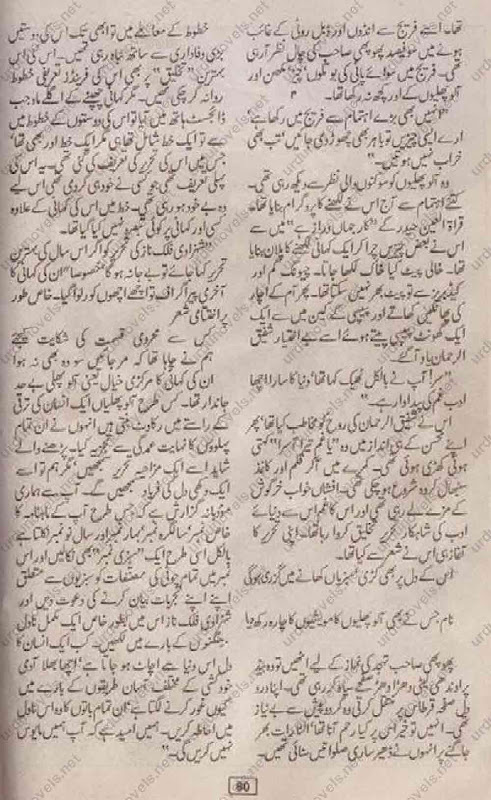 تھا۔ اسے فریج سے انڈوں اور ڈبل روٹی کے غائب
ہونے میں سو فیصد پھوپھی صاحب کی چال نظر آرہی
تھی۔ فریج میں سوائے پانی کی بوتلوں، چیز، مکھن اور
آلو پھلیوں کے اور کچھ نہ رکھا تھا۔
"انہیں بھی بڑے اہتمام سے فریج میں رکھا ہے
ارے ایسی چیزیں تو باہر بھی چھوڑ دی جائیں تب بھی
خراب نہیں ہوتیں۔"
وہ آلو پھلیوں کو سوکنوں والی نظر سے دیکھ رہی تھی۔
کتنے اہتمام سے آج اس نے لکھنے کا پروگرام بنایا تھا۔
قرۃ العین حیدر کے "کار جہاں دراز ہے" میں سے
اس نے بعض چیزیں چرا کر ایک کہانی لکھنے کا پلان بنایا
تھا۔ خالی پیٹ کیا خاک لکھا جاتا۔ چیونگ گم اور
کیڈبریز سے تو پیٹ بھر نہیں سکتا تھا۔ پھر آم کے اچار
کی پھانکیں کھاتے اور پیپسی کے کین میں سے ایک
ایک گھونٹ پیپسی پیتے ہوئے اسے بے اختیار شفیق
الرحمان یاد آگئے۔
"سر! آپ نے بالکل ٹھیک کہا تھا، دنیا کا سارا اچھا
ادب غم کی پیداوار ہے۔"
اس نے شفیق الرحمان کی روح کو مخاطب کیا تھا، پھر
اپنے محسن کے ہی انداز میں وہ "یا غم تیرا آسرا" کہتی
ہوئی کھڑی ہوئی تھی۔ کمرے میں آکر قلم اور کاغذ
سنبھال کر وہ شروع ہو چکی تھی۔ افشاں خواب خرگوش
کے مزے لے رہی تھی اور اس کا غم اس سے دنیائے
ادب کی شاہکار تحریر تخلیق کروا رہا تھا۔ اپنی تحریر کا
آغاز ہی اس نے شعر سے کیا تھا۔
اس کے دل پر بھی کڑی سبزیاں کھانے میں گزری ہوگی
نام جس نے بھی آلو پھلیوں کا مویشیوں کا چارہ رکھ دیا
پھوپھی صاحب تہجد کی نماز کے لیے اٹھیں تو وہ بیڈ
پر اوندھی لیٹی دھڑا دھڑ صفحے سیاہ کر رہی تھی۔ اپنا درد
دل صفحہ قرطاس پر منتقل کرتی وہ گردوپیش سے بے نیاز
تھی۔ انہیں تو خیر اس پر کیا رحم آنا تھا، الٹا رات بھر
جاگنے پر انہوں نے ڈھیر ساری صلواتیں سنائی تھیں۔
خطوط کے معاملے میں تو ابھی تک اس کی دوستیں
بڑی وفاداری سے ساتھ نباہ رہی تھیں۔ اس کی اس
بہترین "تخلیق" پر بھی اس کی فرینڈز تعریفی خطوط
روانہ کر چکی تھیں۔ مگر کہانی چھپنے کے اگلے ماہ جب
ڈائجسٹ ہاتھ میں آیا تو اس کی دوستوں کے خطوط میں
سے تو ایک خط شامل تھا ہی مگر ایک خط اور بھی تھا
جس میں اس کی تحریر کی تعریف کی گئی تھی۔ یہ اس کی
پہلی تعریف تھی جو کسی نے خود ہی کر دی تھی اس لیے
وہ بے خود ہو رہی تھی۔ خط میں اس کی کہانی کے علاوہ
کسی اور کہانی پر کوئی تبصرہ نہیں کیا گیا تھا۔
"شہزادی فلک ناز کی تحریر کو اگر اس سال کی بہترین
تحریر کہا جائے تو بے جا نہ ہو گا خصوصاً ان کی کہانی کا
آخری پیراگراف تو اچھے اچھوں کو رلوا گیا۔ خاص طور
پر اختتامی شعر
کس سے محرومی قسمت کی شکایت کیجئے
ہم نے چاہا تھا کہ مر جائیں سو وہ بھی نہ ہوا
ان کی کہانی کا مرکزی خیال یعنی آلو پھلی بے حد
جاندار تھا۔ کس طرح آلو پھلیاں ایک انسان کی ترقی
کے راستے میں رکاوٹ بنتی ہیں انہوں نے ان تمام
پہلوؤں کا نہایت عمدگی سے تجزیہ کیا۔ پڑھنے والے
شاید اسے ایک مزاحیہ تحریر سمجھیں، مگر ہم تو اسے
ایک دکھی دل کی فریاد سمجھیں گے۔ آپ سے ہماری
مودبانہ گزارش ہے کہ جس طرح آپ کے ماہنامہ کا
خاص نمبر، سالگرہ نمبر، بہار نمبر اور سال نو نمبر نکلتا ہے
بالکل اسی طرح ایک "سبزی نمبر" بھی نکالیں اور اس
نمبر میں تمام چوٹی کی مصنفات کو سبزیوں سے متعلق
اپنے اپنے تجربات بیان کرنے کی دعوت دیں اور
شہزادی فلک ناز اس میں بطور خاص ایک مکمل ناول
بھنگنوں کے بارے میں لکھیں۔ کب ایک انسان کا
دل اس دنیا سے اچاٹ ہو جاتا ہے، اچھا بھلا آدمی
خودکشی کے مختلف آسان طریقوں کے بارے میں
کیوں غور کرنے لگتا ہے، ان تمام باتوں کا وہ اس ناول
میں احاطہ کریں۔ ہمیں امید ہے کہ آپ ہمیں مایوس
نہیں کریں گی۔"
80